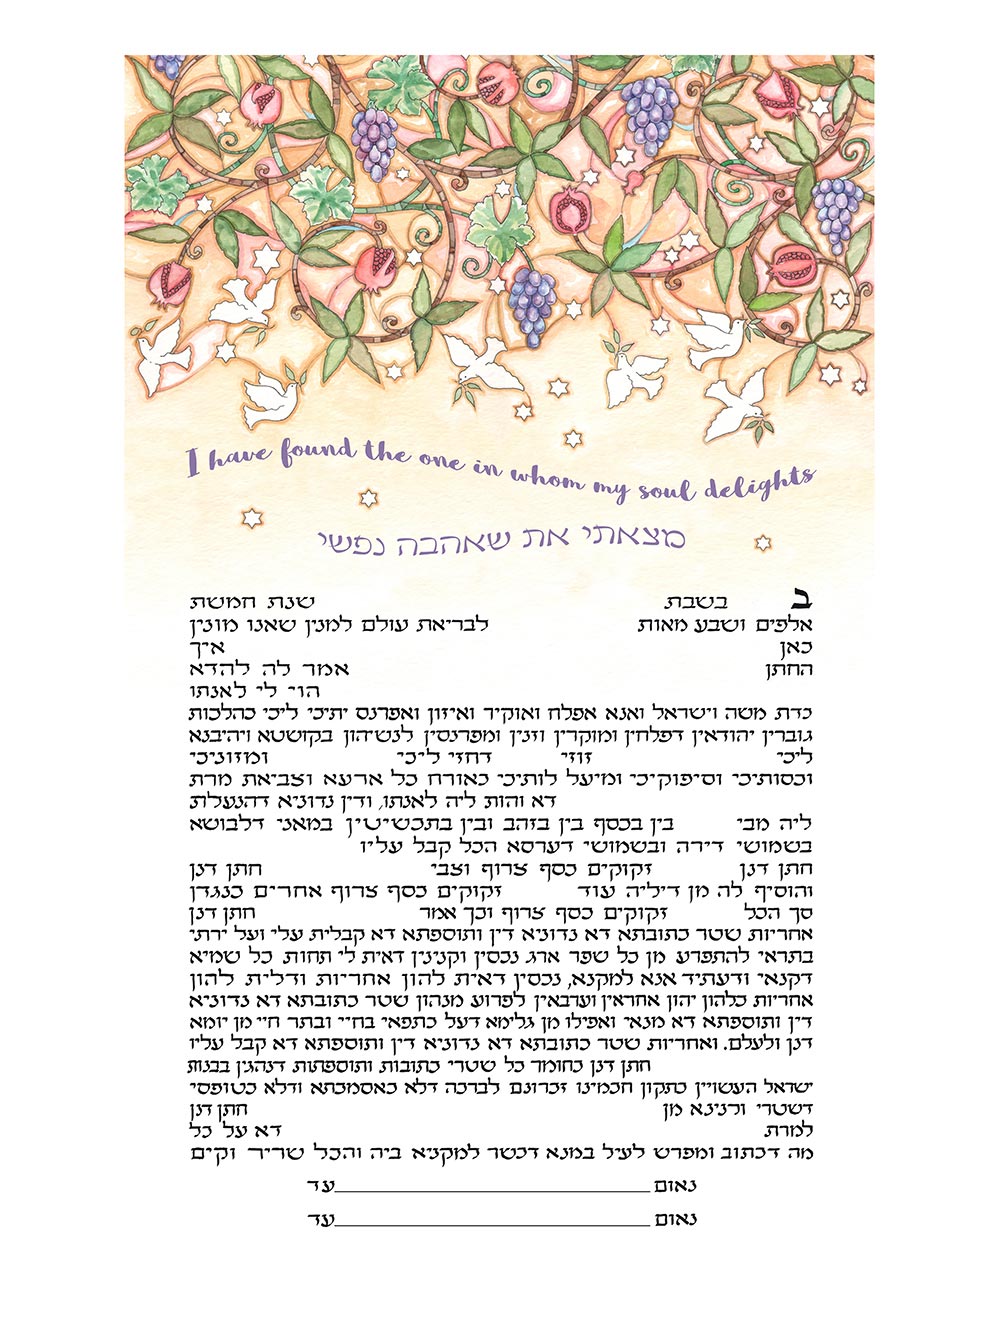 I have found the one in whom my soul delights
מצאתי את שאהבה נפשי
ב בשבת שנת חמשת
אלפים ושבע מאות לבריאת עולם למנין שאנו מונין
כאן איך
החתן אמר לה להדא
הוי לי לאנתו
כדת משה וישראל ואנא אפלח ואוקיר ואיזון ואפרנס יתיכי ליכי כהלכות
גוברין יהודאין דפלחין ומוקרין וזנין ומפרנסין לנשיהון בקושטא ויהיבנא
ליכי זוזי דחזי ליכי ומזוניכי
וכסותיכי וסיפוקיכי ומיעל לותיכי כאורח כל ארעא וצביאת מרת
דא והות ליה לאנתו, ודין נדוניא דהנעלת
ליה מבי בין בכסף בין בזהב ובין בתכשיטין במאני דלבושא
בשמושי דירה ובשמושי דערסא הכל קבל עליו
חתן דנן זקוקים כסף צרוף וצבי חתן דנן
והוסיף לה מן דיליה עוד זקוקים כסף צרוף אחרים כנגדן
סך הכל זקוקים כסף צרוף וכך אמר חתן דנן
אחריות שטר כתובתא דא נדוניא דין ותוספתא דא קבלית עלי ועל ירתי
בתראי להתפרע מן כל שפר ארג נכסין וקנינין דאית לי תחות כל שמיא
דקנאי ודעתיד אנא למקנא, נכסין דאית להון אחריות ודלית להון
אחריות כלהון יהון אחראין וערבאין לפרוע מנהון שטר כתובתא דא נדוניא
דין ותוספתא דא מנאי ואפילו מן גלימא דעל כתפאי בחיי ובתר חיי מן יומא
דנן ולעלם. ואחריות שטר כתובתא דא נדוניא דין ותוספתא דא קבל עליו
חתן דנן כחומר כל שטרי כתובות ותוספתות דנהגין בבנות
ישראל העשויין כתקון חכמינו זכרונם לברכה דלא כאסמכתא ודלא כטופסי
דשטרי וקנינא מן חתן דנן
למרת דא על כל
מה דכתוב ומפרש לעיל במנא דכשר למקניא ביה והכל שריר וקים
נאום עד
נאום עד